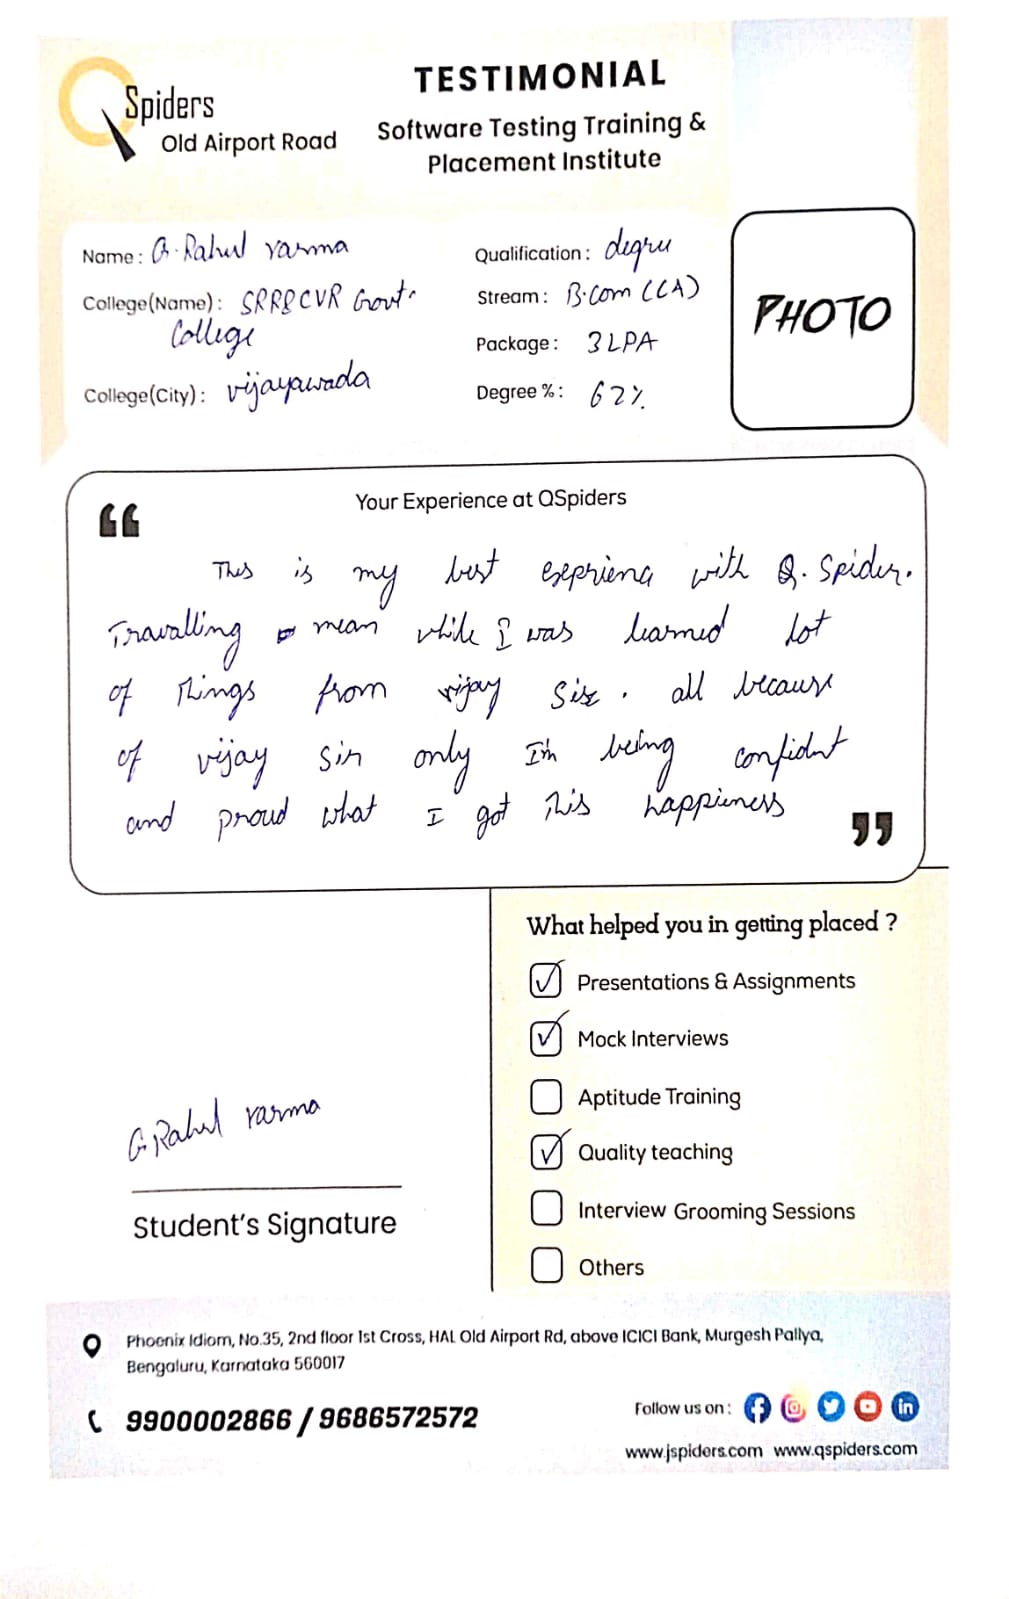 TESTIMONIAL
QSpiders
Old Airport Road
Software Testing Training &
Placement Institute
Name: G. Rahul varma
College(Name): SRR&CVR Govt.
College
College(City): vijayawada
Qualification: degree
Stream: B.com (CA)
Package: 3 LPA
Degree %: 62%
PHOTO
Your Experience at QSpiders
This is my best expriena with Q. Spider.
Travalling mean while I was learned lot
of things from vijay Sir. all because
of vijay Sir only I'm being confident
and proud what I got This happieness
What helped you in getting placed ?
Presentations & Assignments
Mock Interviews
Aptitude Training
Quality teaching
Interview Grooming Sessions
Others
G. Rahul varma
Student's Signature
Phoenix Idiom, No.35, 2nd floor 1st Cross, HAL Old Airport Rd, above ICICI Bank, Murgesh Pallya,
Bengaluru, Karnataka 560017
9900002866 / 9686572572
Follow us on:
www.jspiders.com www.qspiders.com